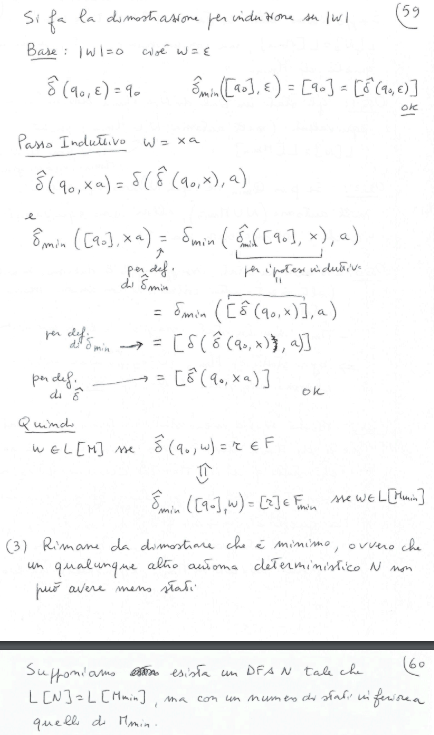 Si fa la dimostrazione per induzione su |w| (59
Base : |w|=0 cioè w=ε
δ̂(q₀,ε)=q₀ δ̂min([q₀],ε)=[q₀]=[δ̂(q₀,ε)]
OK
Passo Induttivo w = xa
δ̂(q₀,xa)=δ(δ̂(q₀,x),a)
e
δ̂min([q₀],xa)=δmin(δ̂min([q₀],x),a)
per def. di δ̂min per ipotesi induttiva
=δmin([δ̂(q₀,x)],a)
per def. di δmin → =[δ(δ̂(q₀,x),a)]
per def. di δ̂ → =[δ̂(q₀,xa)] OK
Quindi
w∈L[M] sse δ̂(q₀,w)=r∈F
⇕
δ̂min([q₀],w)=[r]∈Fmin sse w∈L[Mmin]
(3) Rimane da dimostrare che è minimo, ovvero che
un qualunque altro automa deterministico N non
può avere meno stati
Supponiamo esista un DFA N tale che (60
L[N]=L[Mmin], ma con un numero di stati inferiore a
quelli di Mmin.